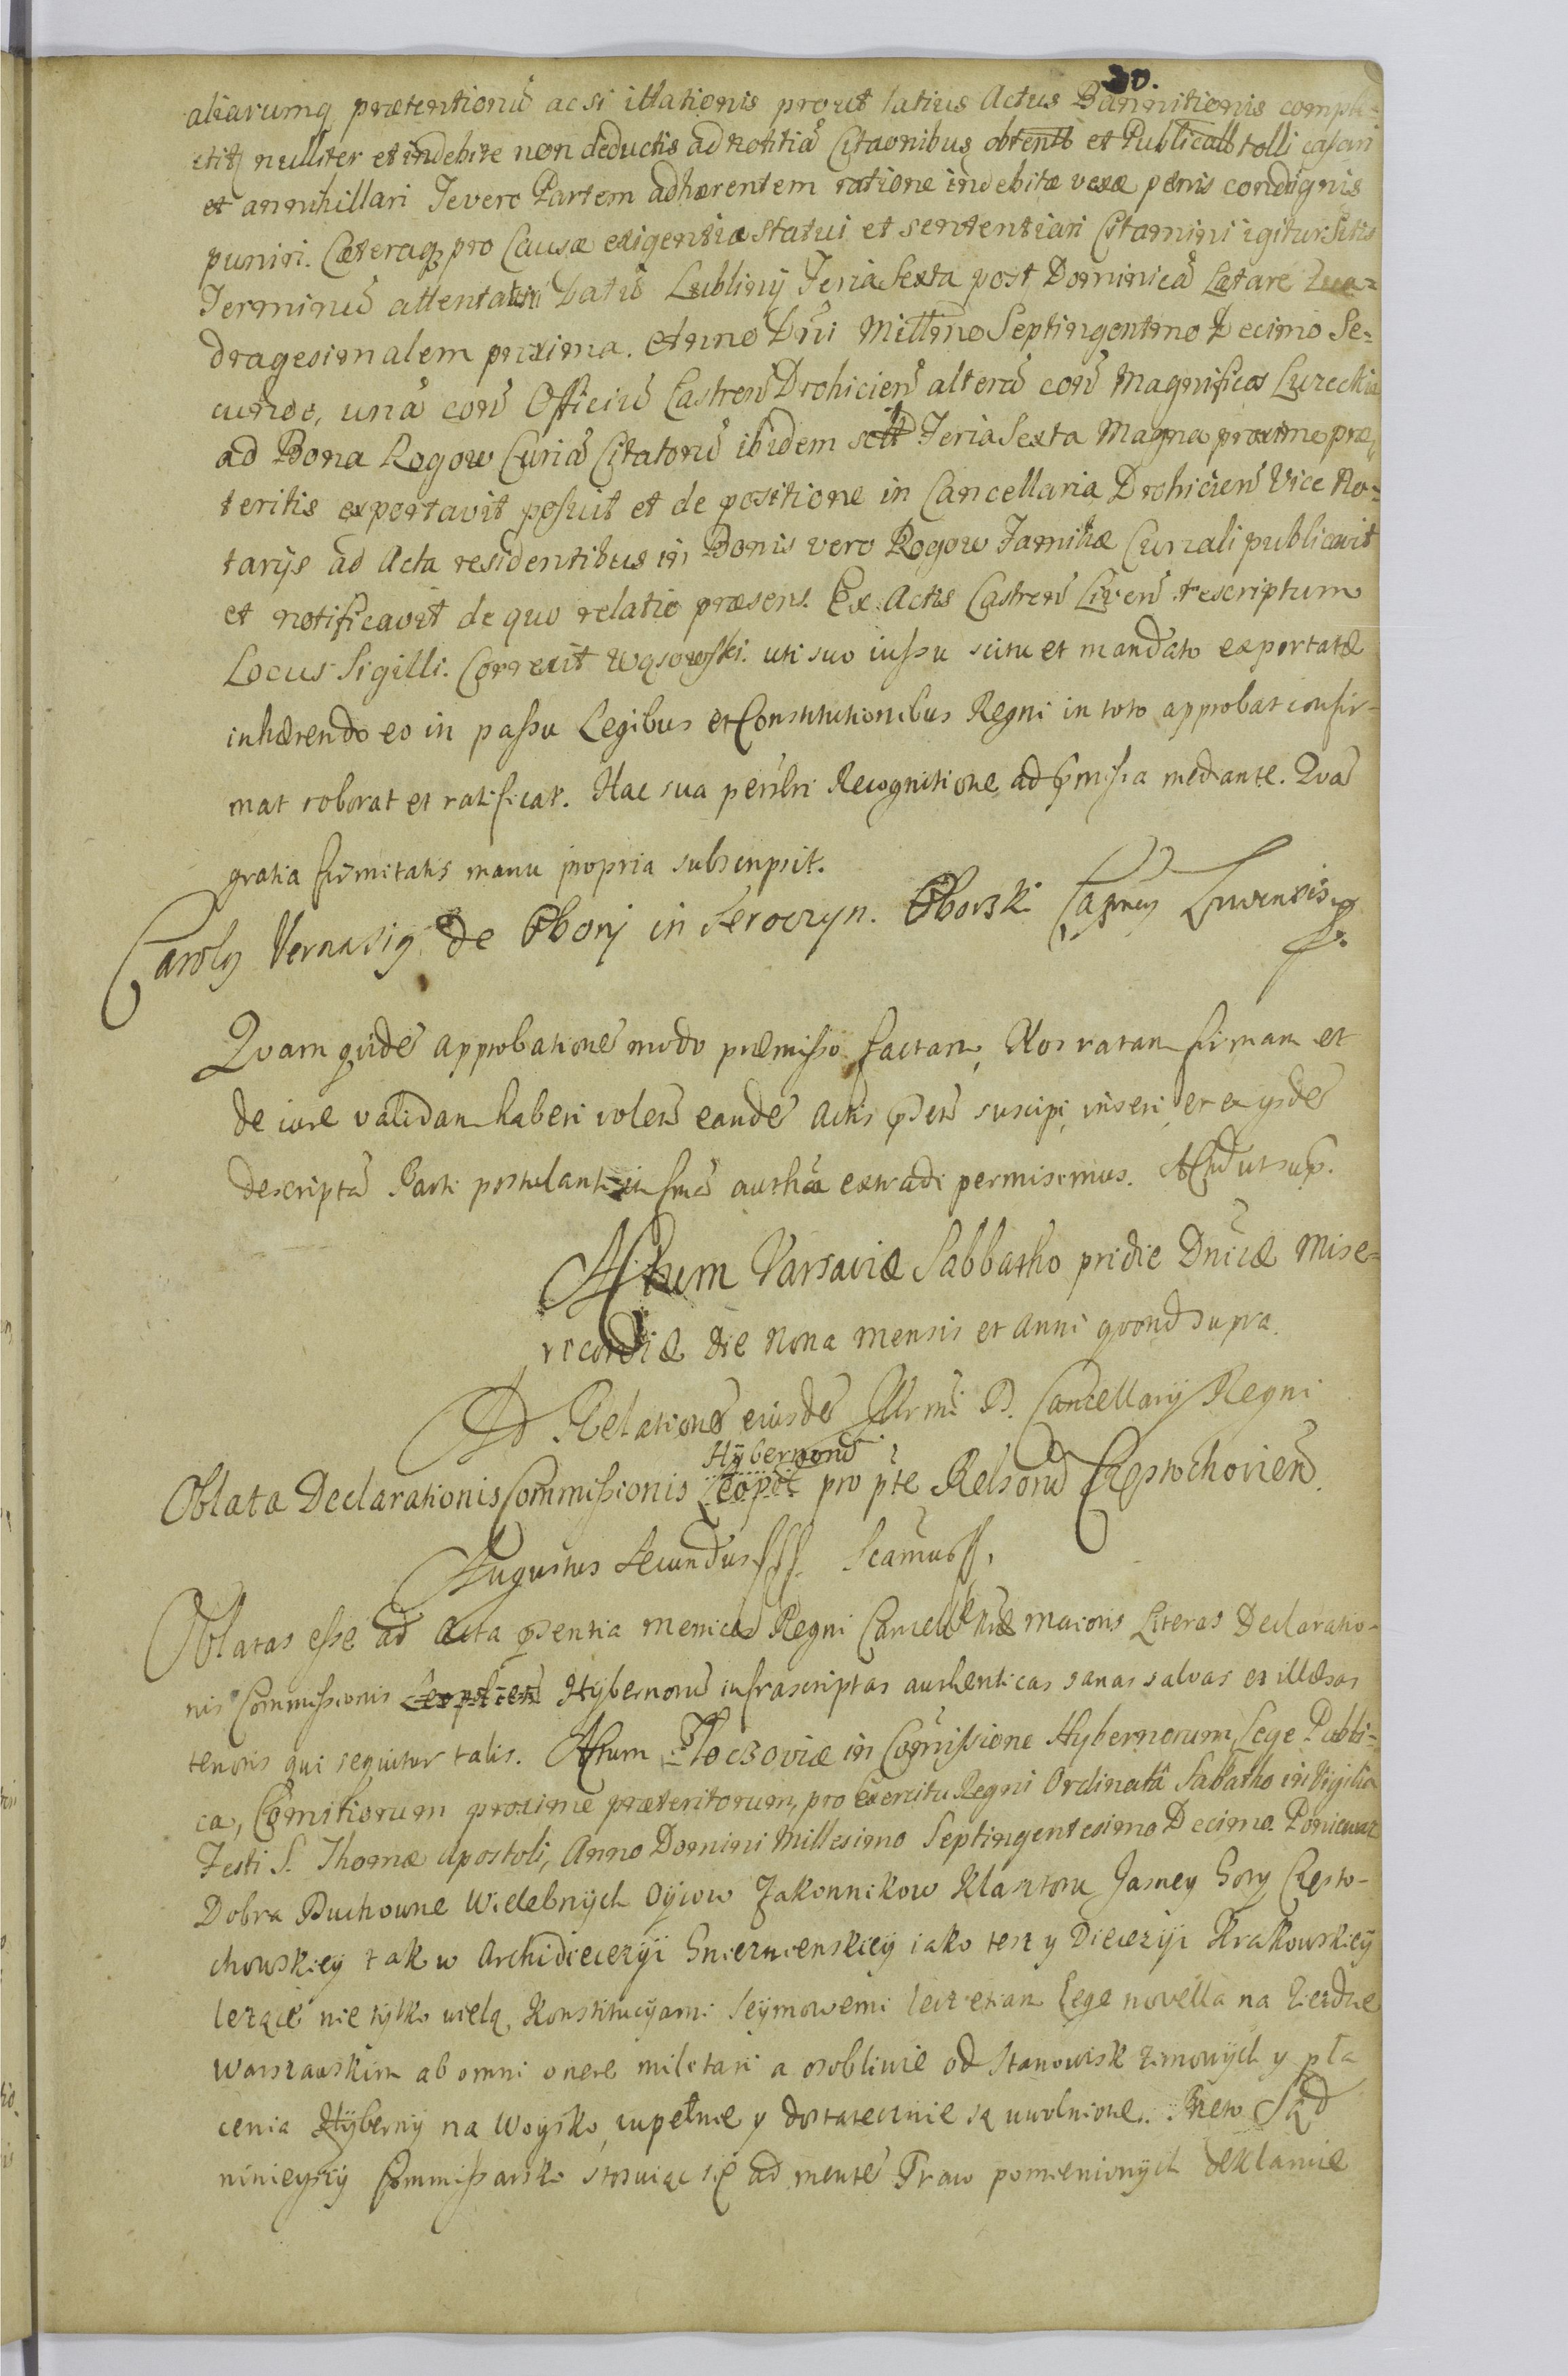 30.
aliarumq prætentionũ ac si illationis prout latius Actus Bannitionis compli-
citũ nulliter et indebite non deductis ad notitiã Citaonibus obtentũ et Publicatũ tolli cassari
et annihillari Te vero Partem adhærentem ratione indebitæ vexæ pænis condignis
puniri. Cæteraq pro Causæ exigentia statui et sententiari Citamini igitur Sitis
Terminũ attentaturi Datũ Lublinÿ Feria Sexta post Dominicã Lætare Qua=
dragesimalem proxima. Anno Dñi Millmo Septingentmo Decimo Se=
cundo, unã corã Officiũ Castreñ Drohicieñ alterã corã Magnificos Kuzeckia
ad Bona Rogow Curiã Citatorũ ibidem sctt Feria Sexta Magna proxime præ,
teritis exportavit posuit et de positione in Cancellaria Drohicieñ Vice No=
tarÿs ad Acta residentibus in Bonis vero Rogow Familiæ Curiali publicavit
et notificavit de quo relatio præsens. Ex Actis Castreñ Liveñ rescriptum
Locus Sigilli. Correxit Wąsowski. uti suo iussu scitu et mandato exportatæ
inhærendo eo in passu Legibus et Constitutionibus Regni in toto approbat confir-
mat roborat et ratificat. Hac sua penlri Recognitione ad pmissa mediante. Quã
gratia firmitatis manu propria subscripsit.
Carolq Vernasiq de Oborÿ in Seroczyn. Oborski Capneq Livensis
Quam qûidẽ approbationẽ modo præmisso factam, Nos ratam firmam et
de iure validam haberi voleñ eandẽ Actis pseñ suscipi, inseri, et ex ÿsdẽ
descriptũ Parti postulanti in formã authã extradi permisimus. Actũ ut sup.
Actum Varsaviæ Sabbatho pridie Dnicæ Mise=
ricordiæ die Nona Mensis et anni quorũ supra.
Ad Relationẽ eiusdẽ Illrmi D. Cancellarÿ Regni
Oblata Declarationis Commissionis Leopol Hÿbernorũ pro pte Relsorũ Czestochovieñ.
Augustus Secundus Scamus
Oblatas esse ad Acta psentia Metrices Regni Cancellariæ Maioris Literas Declaratio-
nis Commissionis Leopolien Hÿbernorũ infrascriptas authenticas sanas salvas et illæsas
tenoris qui sequitur talis. Actum Zloczoviæ in Comissione Hybernorum Lege Publi-
ca, Comitiorum proxime præteritorum, pro Exercitu Regni Ordinatâ Sabatho in Vigilia
Festi S. Thomæ Apostoli, Anno Domini Millesimo Septingentesimo Decimo. Poniewaz
Dobra Duchowne Wielebnÿch Oÿcow Zakonnikow Klasztoru Jasney Gory Czesto-
chowskiey tak w Archidiecezÿi Gnieznienskieÿ iako tesz y Diecezÿi Krakowskieÿ
lezące nie tylko wielą Konstitucÿami Seÿmowemi lecz etiam Lege novella na Zieździe
Warszawskim ab omni onere militari a osobliwie od Stanowisk zimowÿch y pła
cenia Hÿbernÿ na Woysko, zupełnie y dostatecznie są uwolnione. Przeto Sąd
ninieyszÿ Commissarski stosuiąc się ad mentẽ Praw pomienionÿch deklaruie